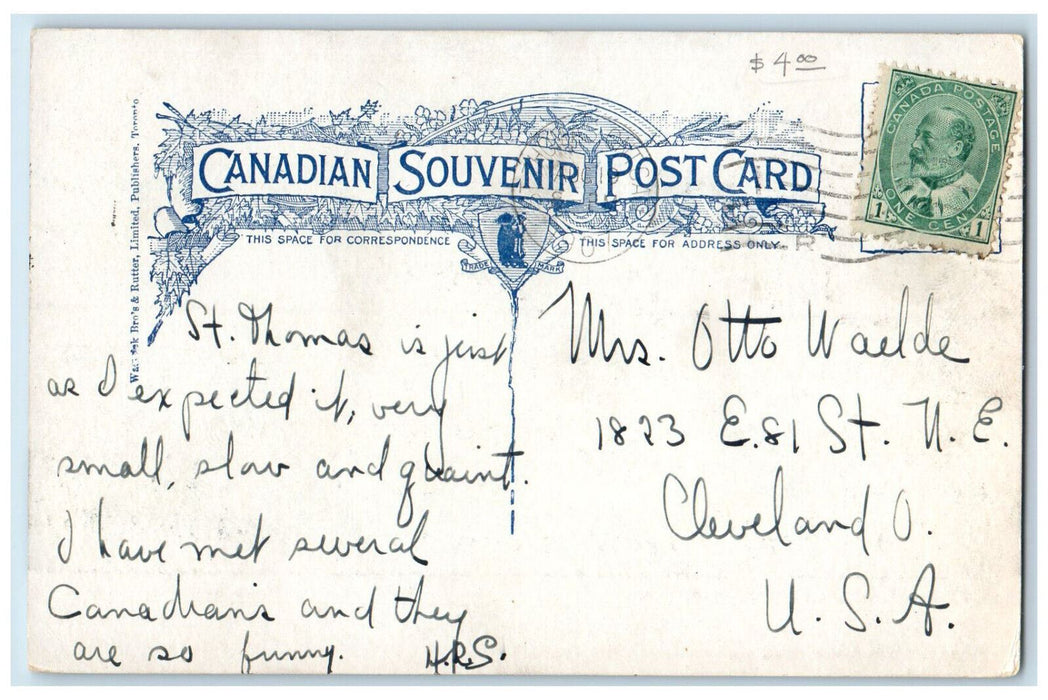 $ 4 00
CANADA POSTAGE
ONE CENT
1 1
Bro's & Rutter, Limited, Publishers, Toronto
CANADIAN SOUVENIR POST CARD
THIS SPACE FOR CORRESPONDENCE
THIS SPACE FOR ADDRESS ONLY
TRADE MARK
St. Thomas is just
as I expected it, very
small, slow and quaint.
I have met several
Canadians and they
are so funny. H.R.S.
Mrs. Otto Waelde
1823 E.81 St. N.E.
Cleveland O.
U.S.A.